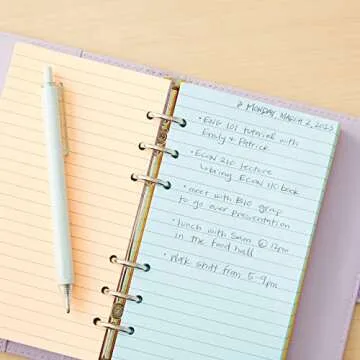 MONDAY, MARCH 2, 2023
• ENG 101 tutorial with
Emily & Patrick
• ECON 210 lecture
↳ bring ECON 110 book
• meet with BIO group
to go over presentation
• lunch with Sam @ 12pm
in the food hall
• work shift from 5-9pm